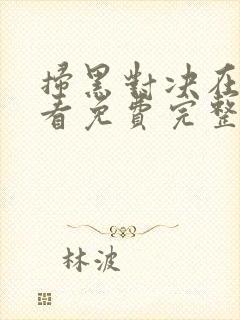 掃黑對决在
看免費完整
林波